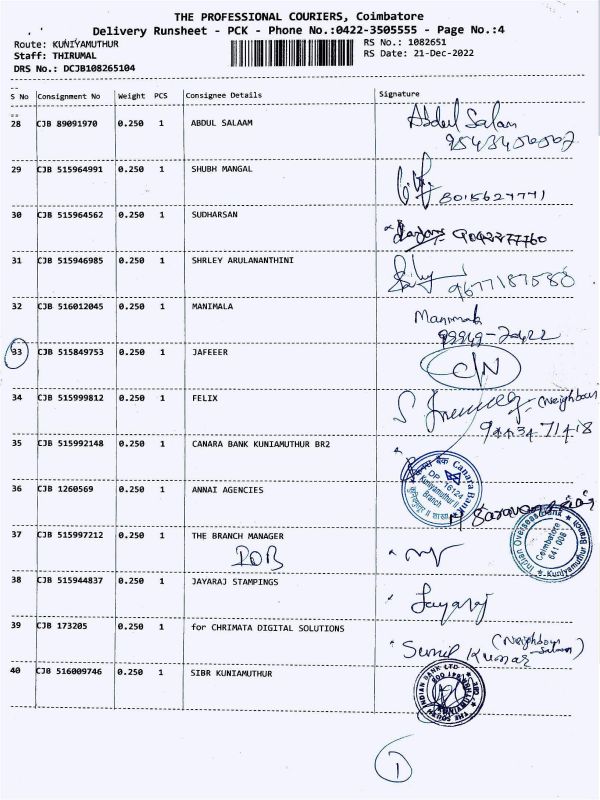 THE PROFESSIONAL COURIERS, Coimbatore
Delivery Runsheet - PCK - Phone No.:0422-3505555 - Page No.:4
Route: KUNIYAMUTHUR RS No.: 1082651
Staff: THIRUMAL RS Date: 21-Dec-2022
DRS No.: DCJB108265104
S No Consignment No Weight PCS Consignee Details Signature
28 CJB 89091970 0.250 1 ABDUL SALAAM Abdul Salam
29 CJB 515964991 0.250 1 SHUBH MANGAL
8015627741
30 CJB 515964562 0.250 1 SUDHARSAN
31 CJB 515946985 0.250 1 SHRLEY ARULANANTHINI
9677187588
32 CJB 516012045 0.250 1 MANIMALA Manimala
99949-20422
33 CJB 515849753 0.250 1 JAFEEER C/N
34 CJB 515999812 0.250 1 FELIX Neighbour
9443471418
35 CJB 515992148 0.250 1 CANARA BANK KUNIAMUTHUR BR2
Canara Bank
DP-16124
Kuniyamuthur II
Branch
36 CJB 1260569 0.250 1 ANNAI AGENCIES
37 CJB 515997212 0.250 1 THE BRANCH MANAGER
IOB
Indian Overseas Bank
Coimbatore
641 008
Kuniyamuthur Branch
38 CJB 515944837 0.250 1 JAYARAJ STAMPINGS Jayaraj
39 CJB 173205 0.250 1 for CHRIMATA DIGITAL SOLUTIONS Sunil Kumar (Neighbour Saloon)
40 CJB 516009746 0.250 1 SIBR KUNIAMUTHUR
THE SOUTH INDIAN BANK LTD
1